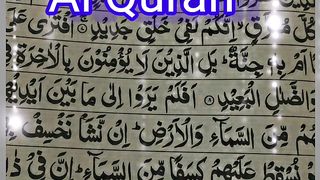 Al Quran
كُلَّ مُمَزَّقٍ ۙ اِنَّكُمْ لَفِیْ خَلْقٍ جَدِیْدٍ ۚ اَفْتَرٰی عَلَی
اَمْ بِهٖ جِنَّةٌ ؕ بَلِ الَّذِیْنَ لَا یُؤْمِنُوْنَ بِالْاٰخِرَةِ
وَالضَّلٰلِ الْبَعِیْدِ ۞ اَفَلَمْ یَرَوْا اِلٰی مَا بَیْنَ اَیْدِیْهِمْ
هُمْ مِّنَ السَّمَآءِ وَالْاَرْضِ ؕ اِنْ نَّشَاْ نَخْسِفْ بِهِمُ
نُسْقِطْ عَلَیْهِمْ كِسَفًا مِّنَ السَّمَآءِ ؕ اِنَّ فِیْ ذٰلِكَ